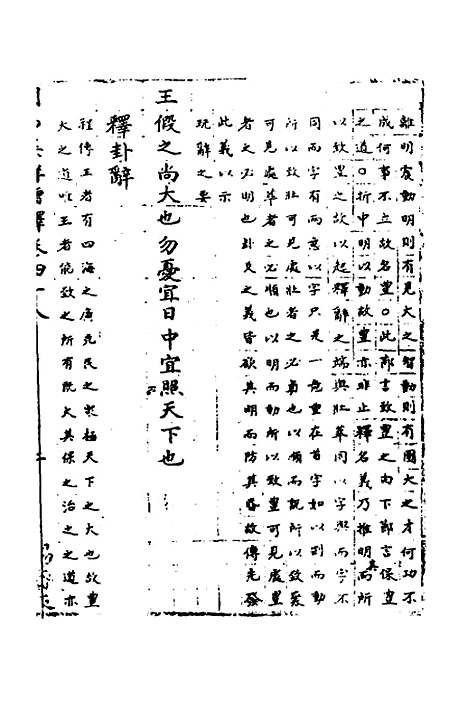 離明震動明則有見大之智動則有圖大之才何功不
成何事不立故名豐○此鄙言致豐之由下鄙言保豐
之道○折中明以動故豐亦非止釋名義乃推明其所
以致豐之故以起釋辭之端與壯萃同以字與而字不
同而字有兩意以字只是一意重在首字如以剛而動
所以致壯可見處壯者之必貞也以順而說所以致聚
可見處萃者之必順也以明而動所以致豐可見處豐
者之必明也卦爻之義皆欲其明而防其昏故傳先發
此義以示
玩辭之要
王假之尚大也勿憂宜日中宜照天下也
釋卦辭
程傳王者有四海之廣兆民之衆極天下之大也故豐
大之道唯王者能致之所有既大其保之治之之道亦